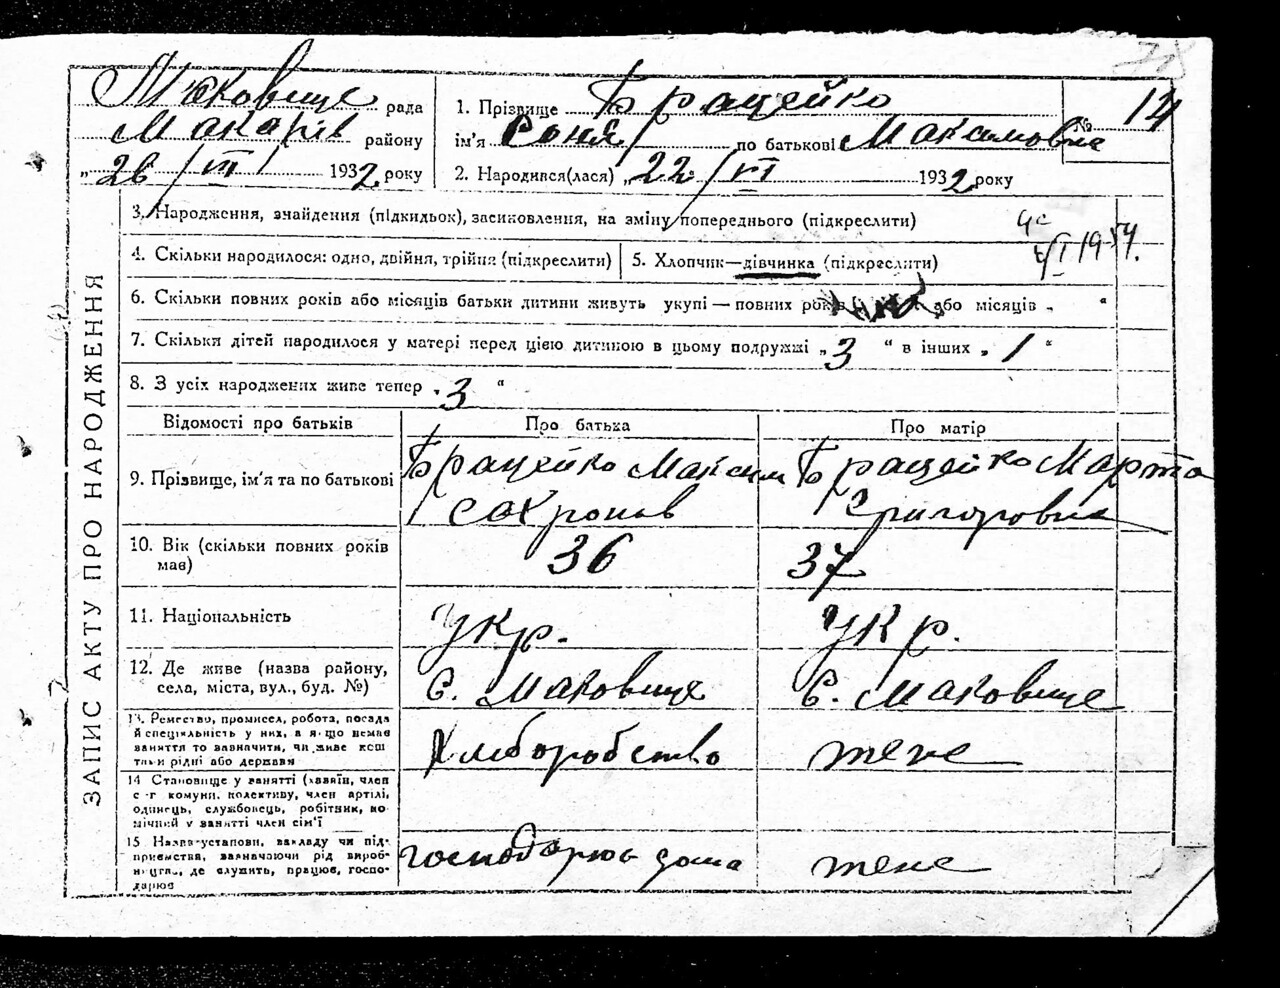 78
Маковище рада
Макарів району
„26/III 1932 року
1. Прізвище Брацейко
ім'я Соня по батькові Максимовна
2. Народився(лася) „22/VI 1932 року
№ 14
3. Народження, знайдення (підкидьок), засиновлення, на зміну попереднього (підкреслити)
4. Скільки народилося: одно, двійня, трійня (підкреслити)
5. Хлопчик—дівчинка (підкреслити)
1954.
6. Скільки повних років або місяців батьки дитини живуть укупі — повних років або місяців „ “
7. Скільки дітей народилося у матері перед цією дитиною в цьому подружжі „3 “ в інших „ 1 “
8. З усіх народжених живе тепер „3 “
ЗАПИС АКТУ ПРО НАРОДЖЕННЯ
Відомості про батьків
Про батька
Про матір
9. Прізвище, ім'я та по батькові
Брацейко Максим
Сахронов
Брацейко Марта
Григоровна
10. Вік (скільки повних років
має)
36
37
11. Національність
Укр.
Укр.
12. Де живе (назва району,
села, міста, вул., буд. №)
с. Маковище
с. Маковище
13. Ремество, промисел, робота, посада
й спеціяльність у них, а якщо немає
заняття то зазначити, чи живе кош
тами рідні або держави
Хлиборобство
теже
14 Становище у занятті (хазяїн, член
с.-г комуни, колективу, член артілі,
одинець, службовець, робітник, по
мічний у занятті член сім'ї
15 Назва установи, закладу чи під-
приємства, зазначаючи рід вироб-
ництва, де служить, працює, госпо-
дарює
господарює дома
теже